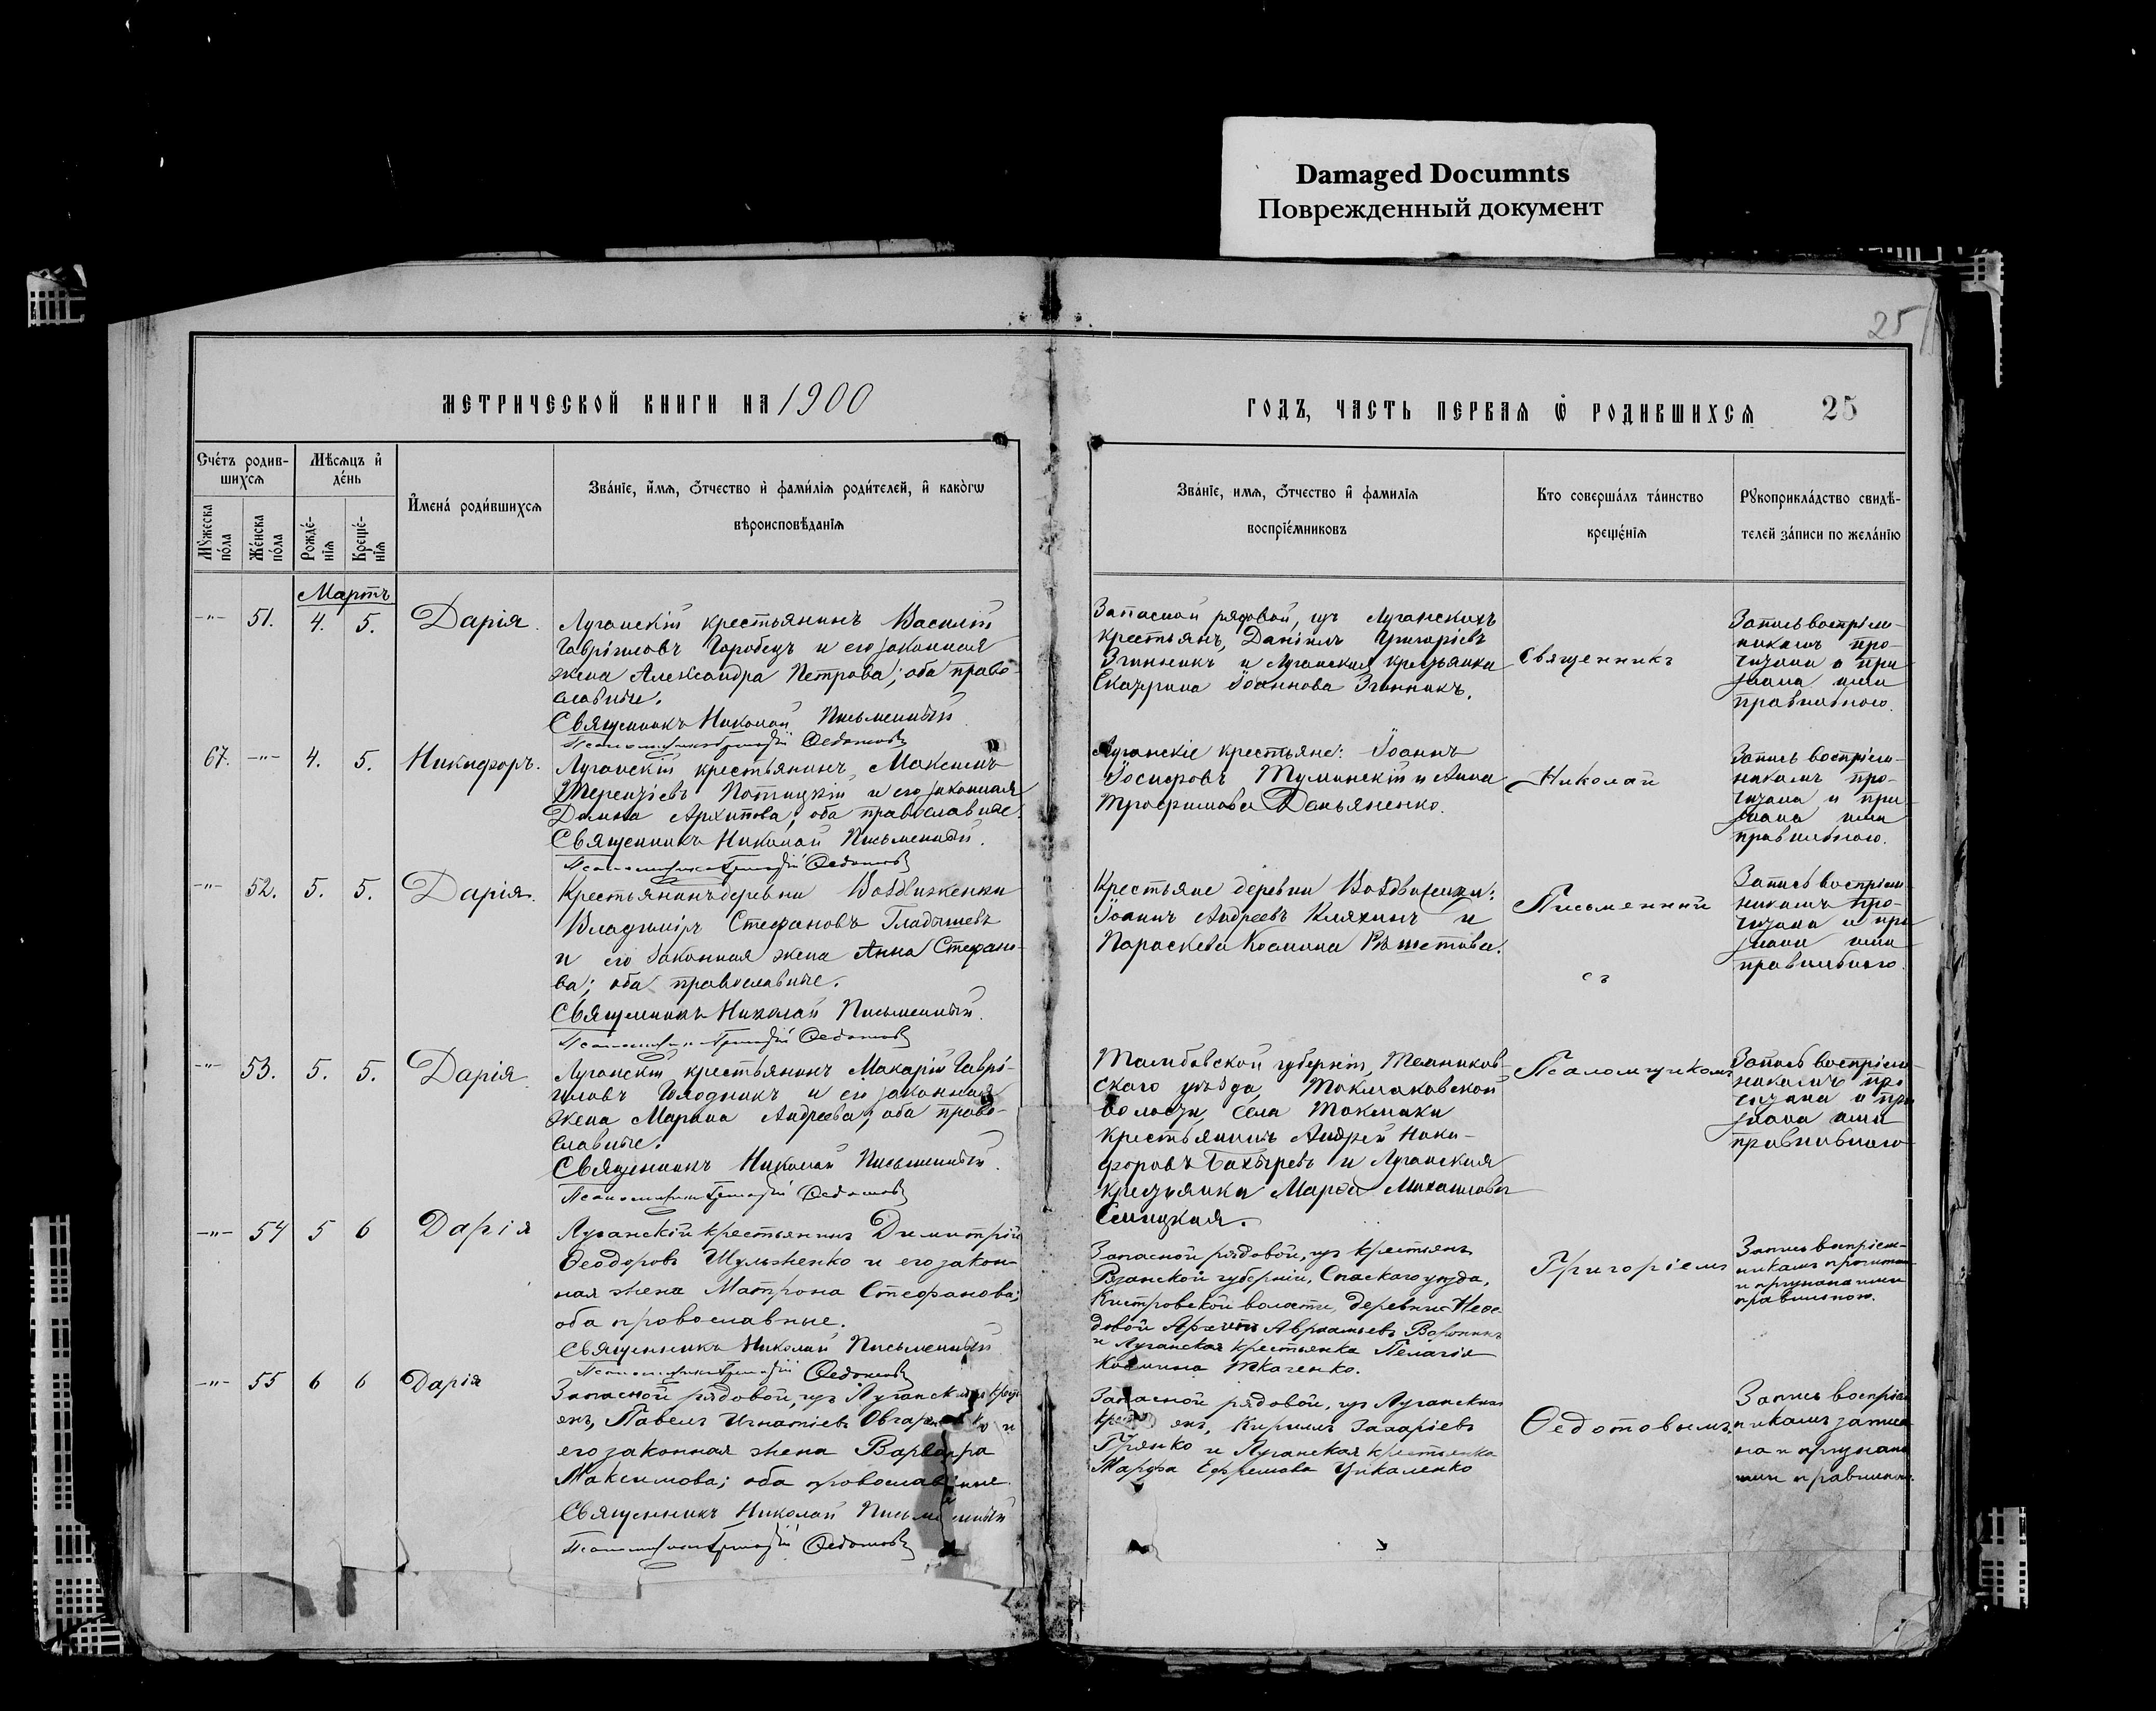 Damaged Documnts
Поврежденный документ
25
МЕТРИЧЕСКОЙ КНИГИ НА 1900
ГОДЪ, ЧАСТЬ ПЕРВАЯ Ѡ РОДИВШИХСЯ 25
Счетъ родив-
шихся
Мѣсяцъ и
день
Мужеска
пола
Женска
пола
Рожде-
нія
Креще-
нія
Имена родившихся
Званіе, имя, отчество и фамилія родителей, и какогѡ
вѣроисповѣданія
Званіе, имя, отчество и фамилія
воспріемниковъ
Кто совершалъ таинство
крещенія
Рукоприкладство свидѣ-
телей записи по желанію
Мартъ
-"- 51. 4. 5. Дарія.
Луганскій крестьянинъ Василій
Гавріиловъ Горобецъ и его законная
жена Александра Петрова; оба право-
славные.
Священникъ Николай Письменный
Псаломщикъ Григорій Федотовъ
Запасной рядовой, изъ Луганскихъ
крестьянъ, Даніилъ Григоріевъ
Згинникъ и Луганская крестьянка
Екатерина Іоаннова Згинникъ.
Священникъ
Запись воспріем-
никамъ про-
читана и при
знана ими
правильною.
67. -"- 4. 5. Никифоръ.
Луганскій крестьянинъ, Максимъ
Терентіевъ и его законная
Домна Архипова; оба православные.
Священникъ Николай Письменный.
Псаломщикъ Григорій Федотовъ
Луганскіе крестьяне: Іоаннъ
Іосифовъ Туминскій и Анна
Трофимова Демьяненко.
Николай
Запись воспріем-
никамъ про-
читана и при-
знана ими
правильною.
-"- 52. 5. 5. Дарія.
Крестьянинъ деревни Воздвиженки
Владиміръ Стефановъ Гладышевъ
и его законная жена Анна Стефано-
ва; оба православные.
Священникъ Николай Письменный.
Псаломщикъ Григорій Федотовъ
Крестьяне деревни Воздвиженки:
Іоаннъ Андреевъ Кляхинъ и
Параскева Косьмина Рѣшетова.
Письменный
съ
Запись воспріем-
никамъ про-
читана и при
знана ими
правильною.
-"- 53. 5. 5. Дарія
Луганскій крестьянинъ Макарій Гаврі-
иловъ и его законная
жена Марина Андреева; оба право-
славные.
Священникъ Николай Письменный.
Псаломщикъ Григорій Федотовъ
Тамбовской губерніи, Темников-
скаго уѣзда, Токмаковской
волости, села Токмаки
крестьянинъ Андрей Ники-
форовъ Бахтыревъ и Луганская
крестьянка Марфа Михайлова
Синицкая.
Псаломщикомъ
Запись воспріем-
никамъ про
читана и при
знана ими
правильною
-"- 54 5 6 Дарія
Луганскій крестьянинъ Димитрій
Ѳеодоровъ Шульженко и его закон-
ная жена Матрона Стефанова;
оба православные.
Священникъ Николай Письменный
Псаломщикъ Григорій Федотовъ
Запасной рядовой, изъ крестьянъ
Рязанской губерніи, Спаскаго уѣзда,
Кистровской волости, деревни
Архипъ Воронинъ
и Луганская крестьянка Пелагія
Косьмина Ткаченко.
Григоріемъ
Запись воспріем-
никамъ прочитана
и признана ими
правильною.
-"- 55 6 6 Дарія
Запасной рядовой, изъ Луганскихъ крест
янъ, Павелъ Игнатіевъ и
его законная жена Варвара
Максимова; оба православные.
Священникъ Николай Письменный
Псаломщикъ Григорій Федотовъ
Запасной рядовой, изъ Луганскихъ
крест янъ, Кириллъ Захаріевъ
и Луганская крестьянка
Марфа Ефремова Цикаленко
Ѳедотовымъ.
Запись воспріем
никамъ
на и признана
ими правильн.